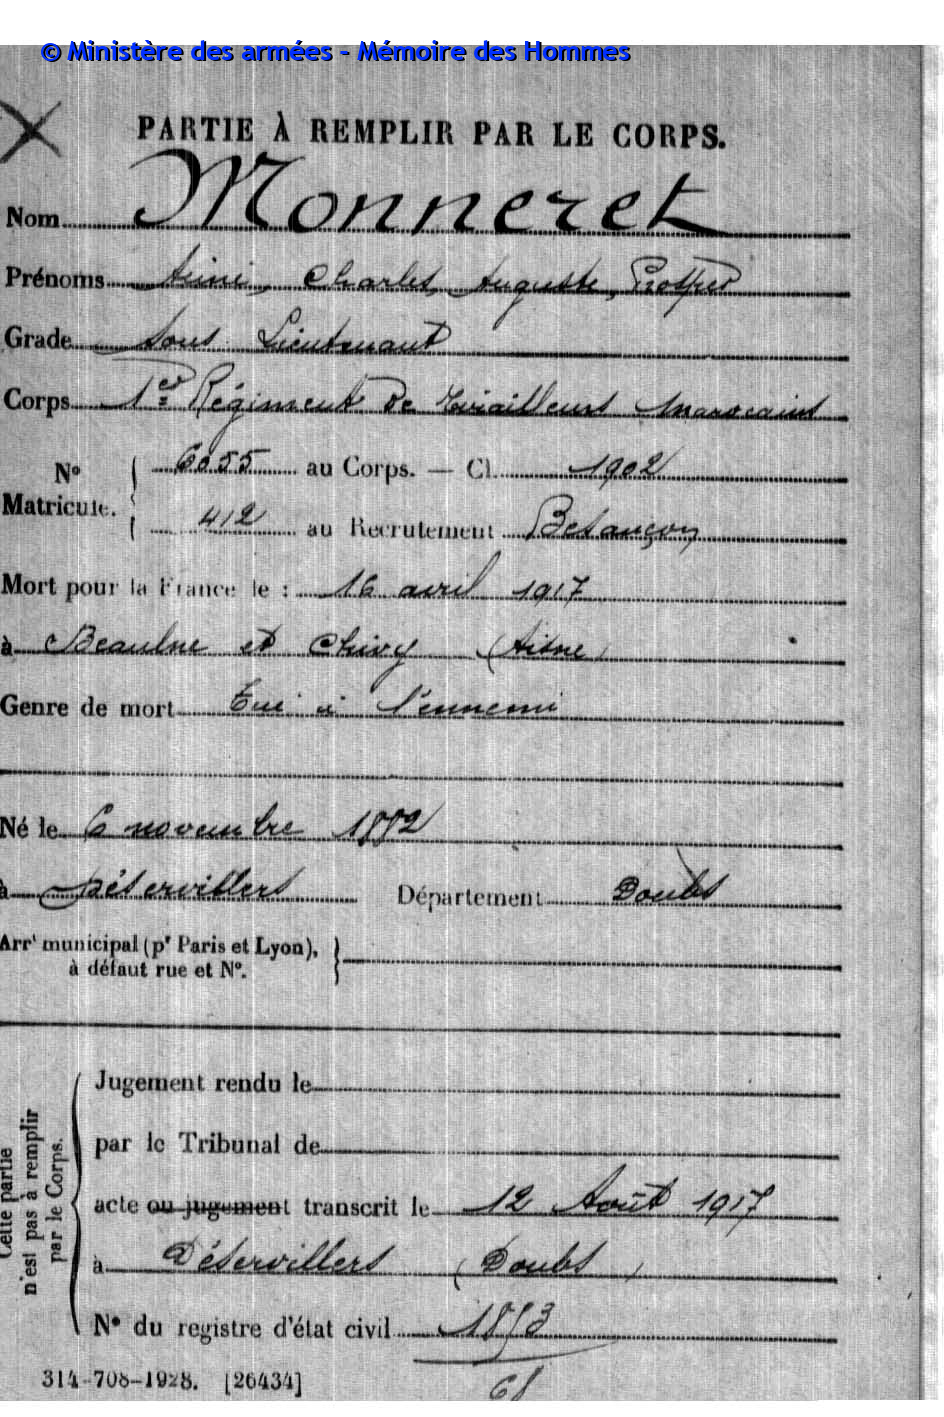 © Ministère des armées - Mémoire des Hommes
PARTIE À REMPLIR PAR LE CORPS.
Nom Monneret
Prénoms Aimé, Charles, Auguste, Prosper
Grade Sous Lieutenant
Corps 1er Régiment de Tirailleurs Marocains
N° Matricule. 6055 au Corps. — Cl. 1902
412 au Recrutement Besançon
Mort pour la France le : 16 avril 1917
à Beaulne et Chivy (Aisne)
Genre de mort Tué à l'ennemi
Né le 6 novembre 1882
à Déservillers Département Doubs
Arrt municipal (pr Paris et Lyon),
à défaut rue et N°.
Cette partie
n'est pas à remplir
par le Corps.
Jugement rendu le
par le Tribunal de
acte ou jugement transcrit le 12 Août 1917
à Déservillers (Doubs)
N° du registre d'état civil
314-708-1928. [26434]